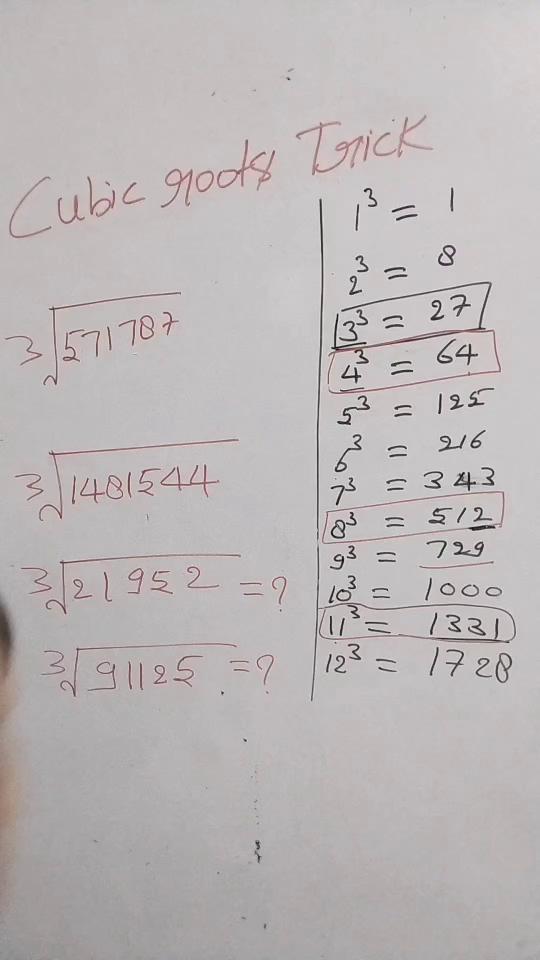 Cubic roots Trick
∛571787
∛1481544
∛21952 = ?
∛91125 = ?
1³ = 1
2³ = 8
3³ = 27
4³ = 64
5³ = 125
6³ = 216
7³ = 343
8³ = 512
9³ = 729
10³ = 1000
11³ = 1331
12³ = 1728